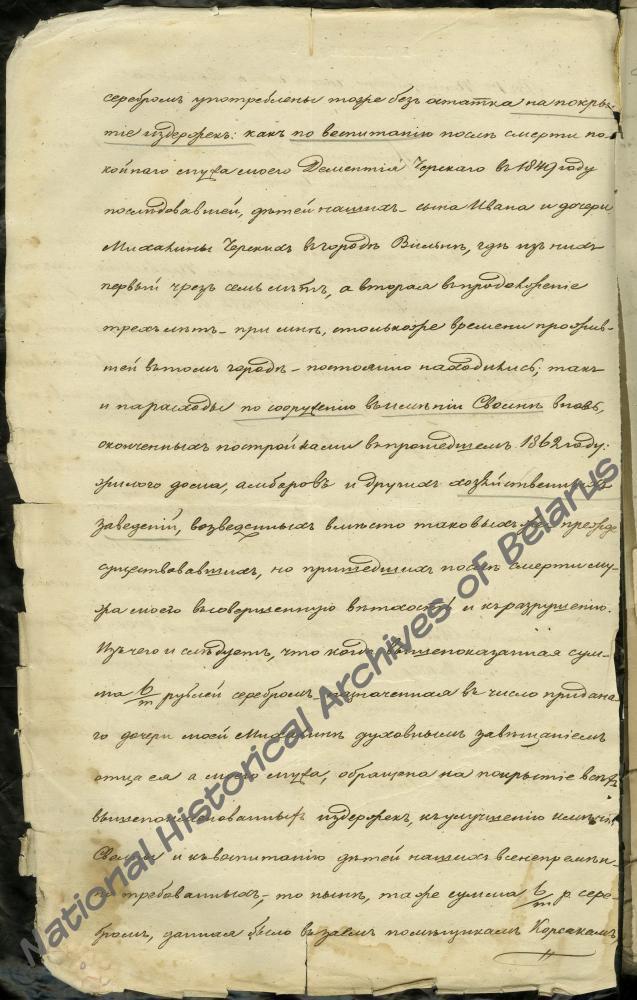 серебромъ употреблены тоже безъ остатка на покры-
тіе издержекъ: какъ по воспитанію послѣ смерти по-
койнаго мужа моего Дементія Черскаго въ 1849 году
послѣдовавшей, дѣтей нашихъ – сына Ивана и дочери
Михалины Черскихъ въ городѣ Вильнѣ, гдѣ изъ нихъ
первый чрезъ семь лѣтъ, а вторая въ продолженіе
трехъ лѣтъ – при мнѣ, столькоже времени прожив-
шей въ томъ городѣ – постоянно находились; такъ
и на расходы по сооруженію въ имѣніи Сволнѣ вновь,
оконченныхъ постройками въ прошедшемъ 1862 году:
жилого дома, амбаровъ и другихъ хозяйственныхъ
заведеній, возведенныхъ вмѣсто таковыхъ же прежде
существовавшихъ, но пришедшихъ послѣ смерти му-
жа моего въ совершенную ветхость и къ разрушенію.
Изъ чего и слѣдуетъ, что когда вышепоказанная сум-
ма 6/m рублей серебромъ – назначенная въ число придана-
го дочери моей Михалинѣ духовнымъ завѣщаніемъ
отца ея а моего мужа, обращена на покрытіе всѣхъ
вышепоименованныхъ издержекъ, къ улучшенію имѣнія
Сволны и къ воспитанію дѣтей нашихъ всенепремѣн-
но требованныхъ, – то нынѣ, та же сумма 6/m р. сере-
бромъ, данная было въ заемъ помѣщикамъ Корсакамъ,
National Historical Archives of Belarus